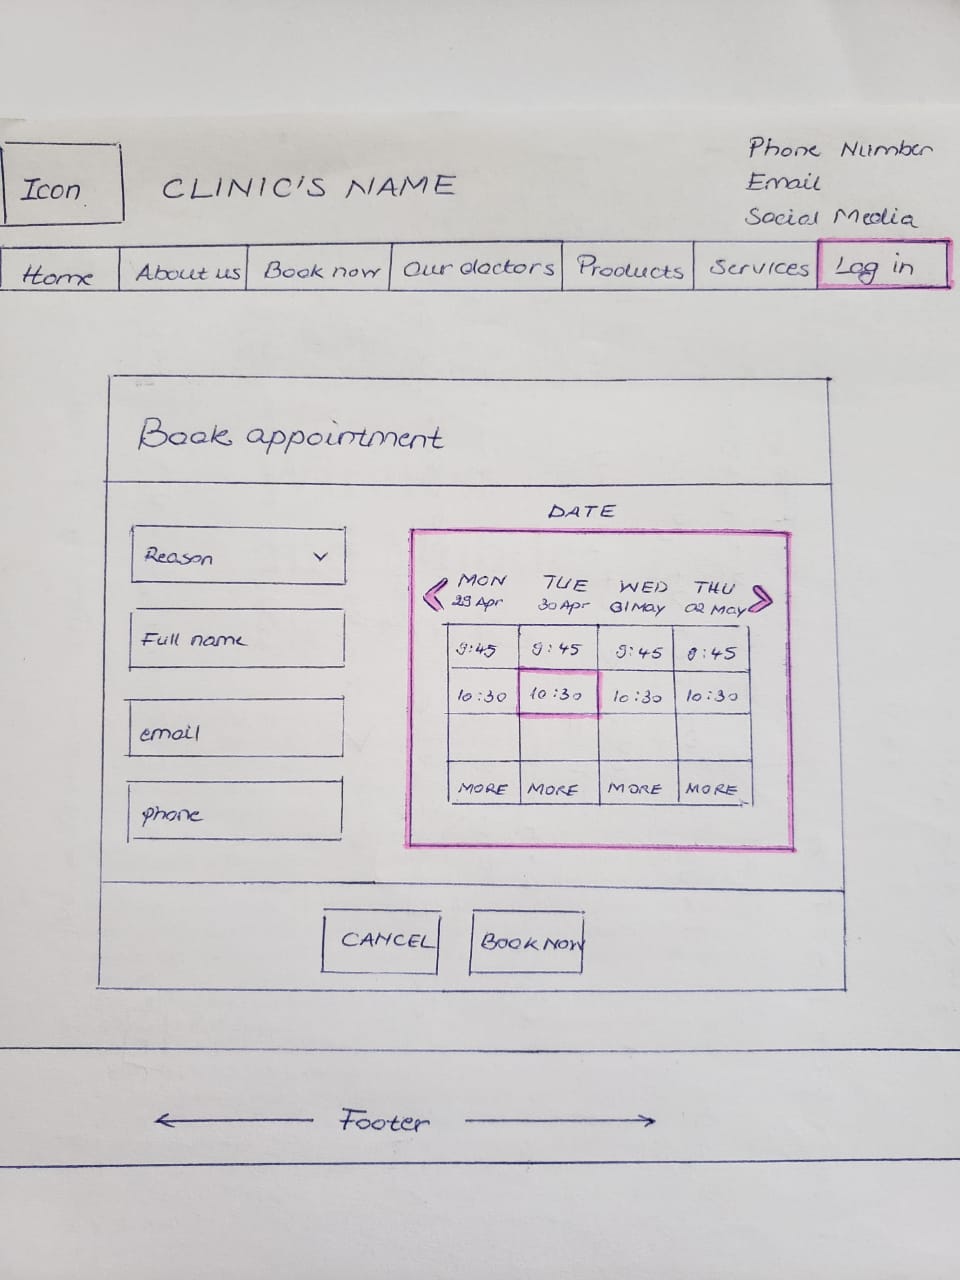 Icon
CLINIC'S NAME
Phone Number
Email
Social Media
Home About us Book now Our doctors Products Services Log in
Book appointment
Reason
Full name
email
phone
DATE
MON TUE WED THU
29 Apr 30 Apr 01 May 02 May
9:45 9:45 9:45 9:45
10:30 10:30 10:30 10:30
MORE MORE MORE MORE
CANCEL BOOK NOW
Footer